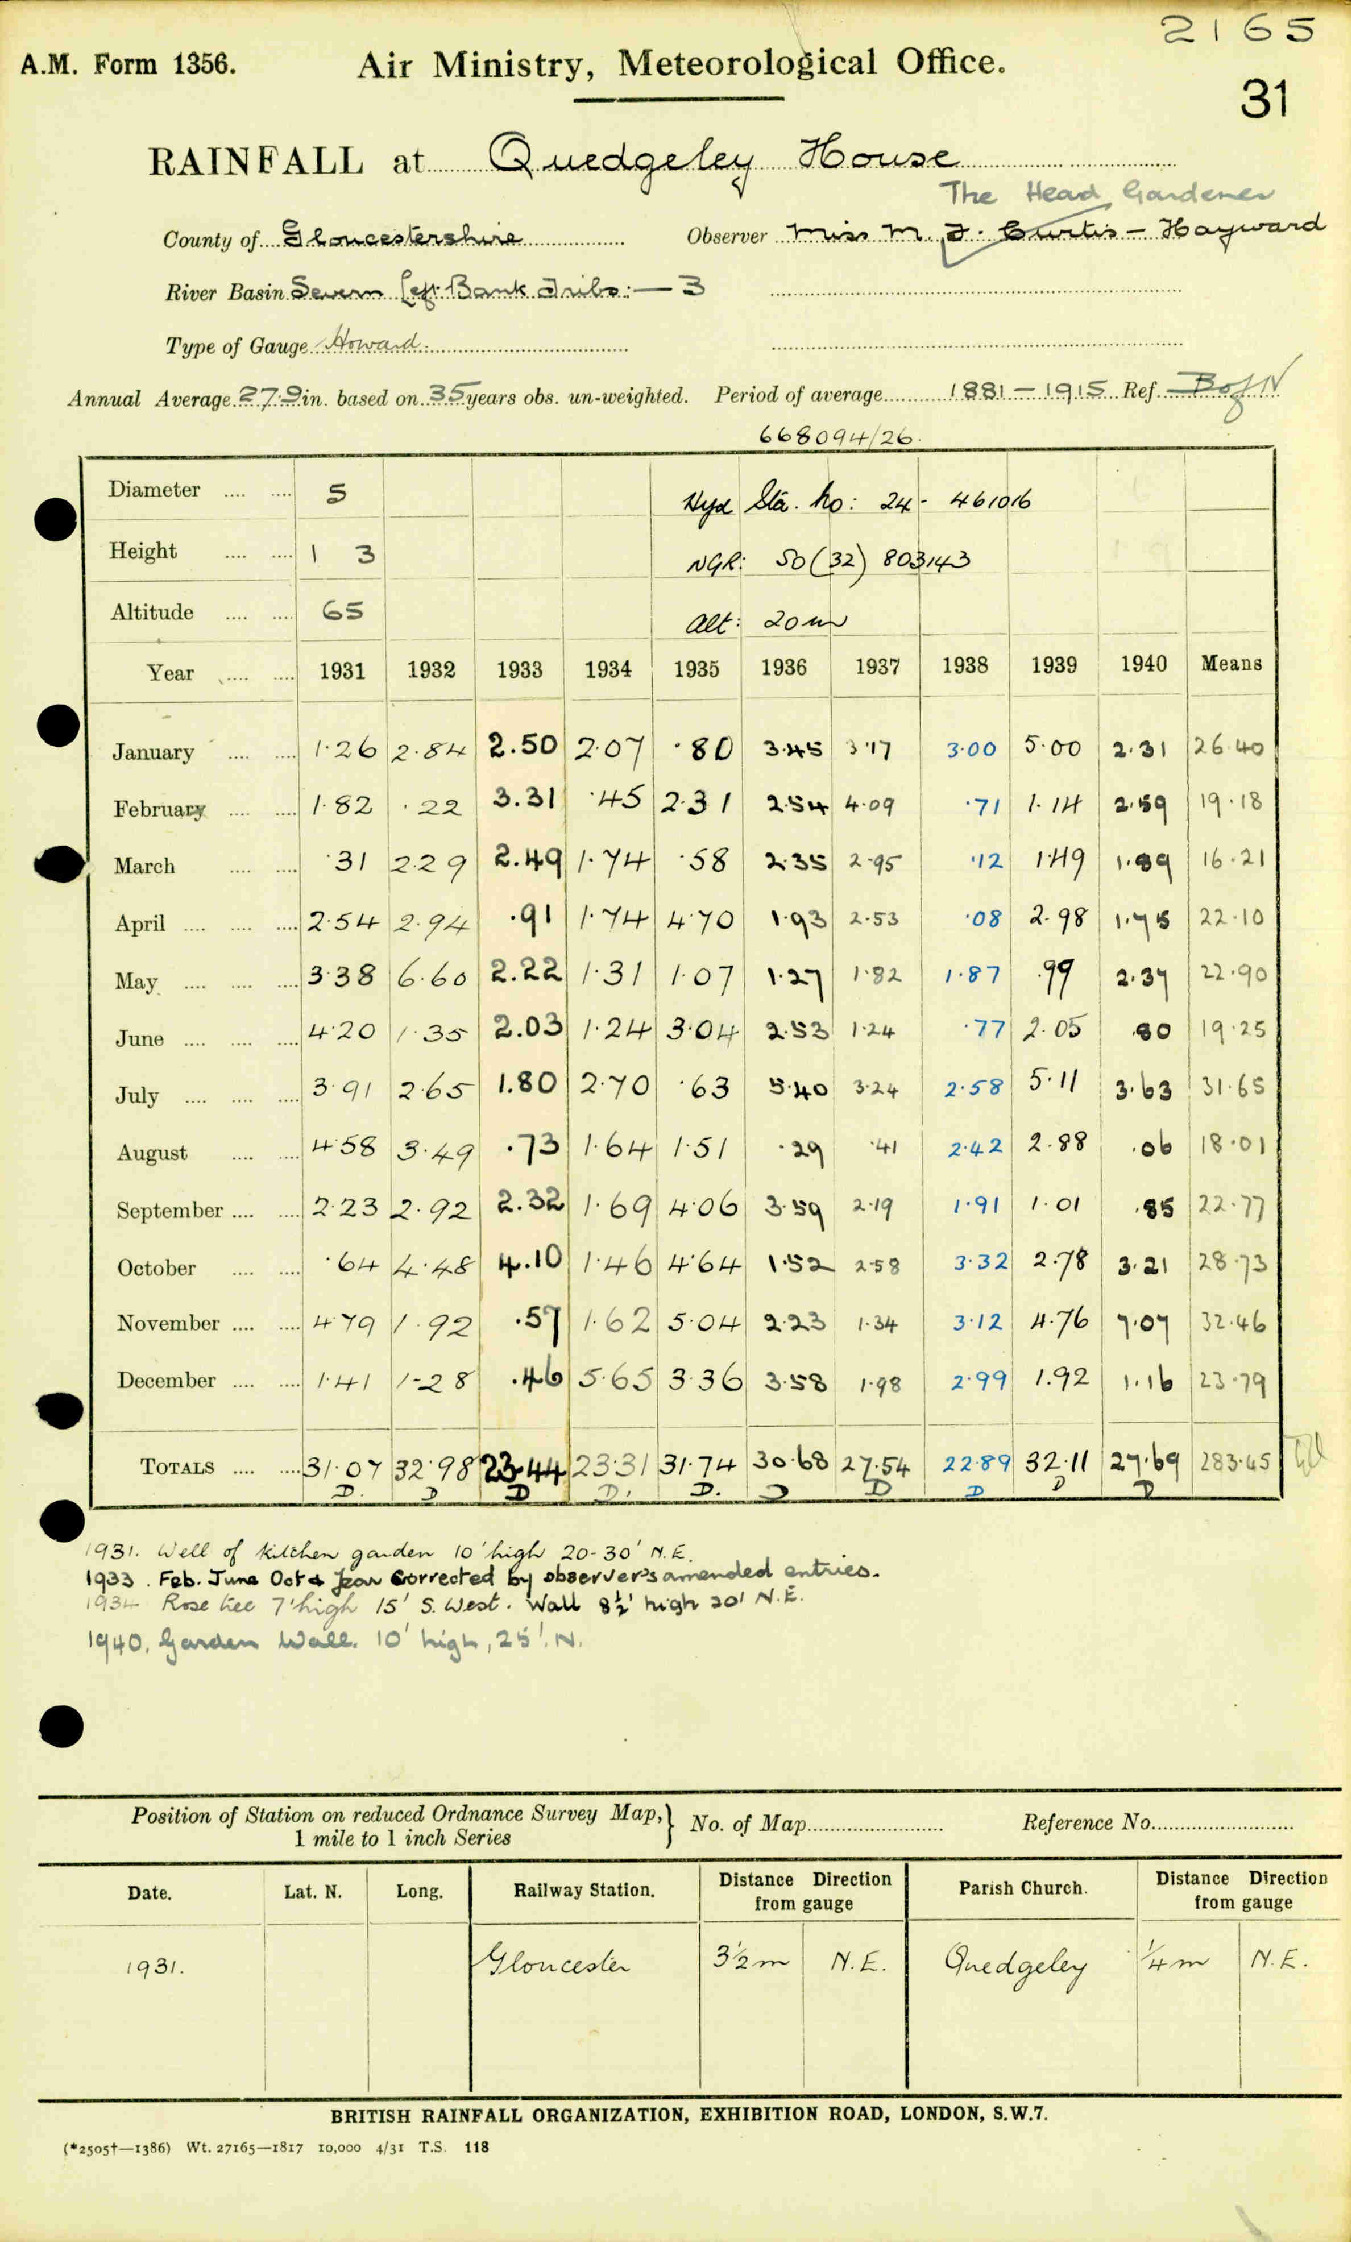 2165
A.M. Form 1356. Air Ministry, Meteorological Office.
31
RAINFALL at Quedgeley House
The Head Gardener
County of Gloucestershire Observer Miss M. F. Curtis - Hayward
River Basin Severn Left Bank Tribs: — 3
Type of Gauge Howard.
Annual Average 27.9 in. based on 35 years obs. un-weighted. Period of average 1881 — 1915 Ref. B of N
668094/26.
Diameter .... .... 5 Hyd Sta. No: 24 - 461016
Height .... .... 1 3 NGR: SO (32) 803143
Altitude .... .... 65 Alt: 20m
Year .... .... 1931 1932 1933 1934 1935 1936 1937 1938 1939 1940 Means
January .... .... 1.26 2.84 2.50 2.07 .80 3.45 3.17 3.00 5.00 2.31 26.40
February .... .... 1.82 .22 3.31 .45 2.31 2.54 4.09 .71 1.14 2.59 19.18
March .... .... .31 2.29 2.49 1.74 .58 2.35 2.95 .12 1.49 1.89 16.21
April .... .... .... 2.54 2.94 .91 1.74 4.70 1.93 2.53 .08 2.98 1.75 22.10
May .... .... .... 3.38 6.60 2.22 1.31 1.07 1.27 1.82 1.87 .99 2.37 22.90
June .... .... .... 4.20 1.35 2.03 1.24 3.04 2.53 1.24 .77 2.05 .80 19.25
July .... .... .... 3.91 2.65 1.80 2.70 .63 5.40 3.24 2.58 5.11 3.63 31.65
August .... .... 4.58 3.49 .73 1.64 1.51 .29 .41 2.42 2.88 .06 18.01
September .... .... 2.23 2.92 2.32 1.69 4.06 3.59 2.19 1.91 1.01 .85 22.77
October .... .... .64 4.48 4.10 1.46 4.64 1.52 2.58 3.32 2.78 3.21 28.73
November .... .... 4.79 1.92 .57 1.62 5.04 2.23 1.34 3.12 4.76 7.07 32.46
December .... .... 1.41 1.28 .46 5.65 3.36 3.58 1.98 2.99 1.92 1.16 23.79
TOTALS .... .... 31.07 32.98 23.44 23.31 31.74 30.68 27.54 22.89 32.11 27.69 283.45
D. D D D. D. D D D D D
1931. Well of kitchen garden 10' high 20-30' N.E.
1933. Feb. June Oct & Year corrected by observer's amended entries.
1934 Rose tree 7' high 15' S. West. Wall 8½' high 20' N.E.
1940. Garden Wall. 10' high, 25'. N.
Position of Station on reduced Ordnance Survey Map, } No. of Map Reference No.
1 mile to 1 inch Series
Date. Lat. N. Long. Railway Station. Distance Direction from gauge Parish Church. Distance Direction from gauge
1931. Gloucester 3½ m N.E. Quedgeley ¼ m N.E.
BRITISH RAINFALL ORGANIZATION, EXHIBITION ROAD, LONDON, S.W.7.
(*2505†—1386) Wt. 27165—1817 10,000 4/31 T.S. 118